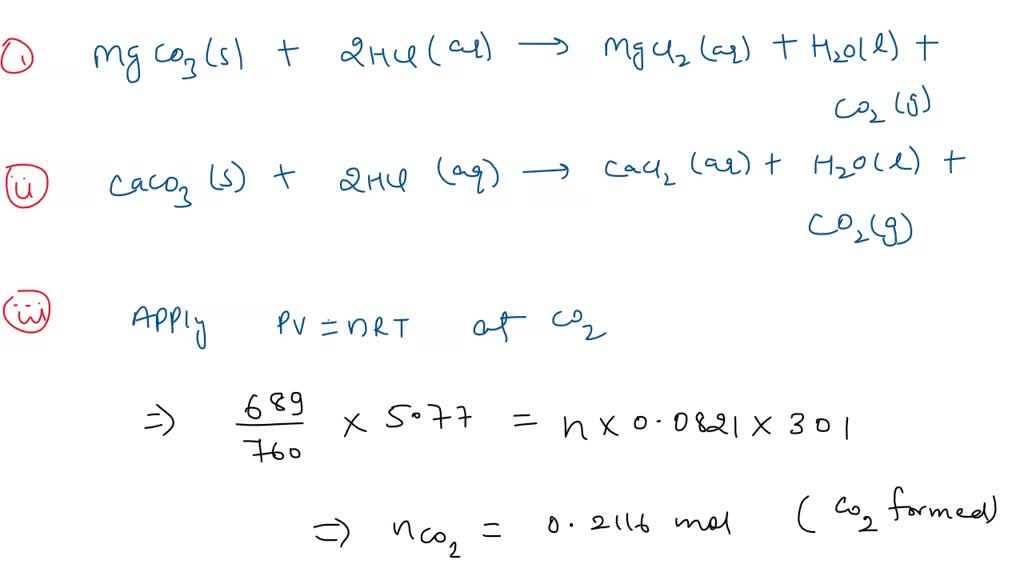 i MgCO3(s) + 2HCl(aq) → MgCl2(aq) + H2O(l) +
CO2(g)
ii CaCO3(s) + 2HCl(aq) → CaCl2(aq) + H2O(l) +
CO2(g)
iii Apply PV = nRT at CO2
⇒ 689/760 × 5.077 = n × 0.0821 × 301
⇒ nCO2 = 0.2116 mol (CO2 formed)